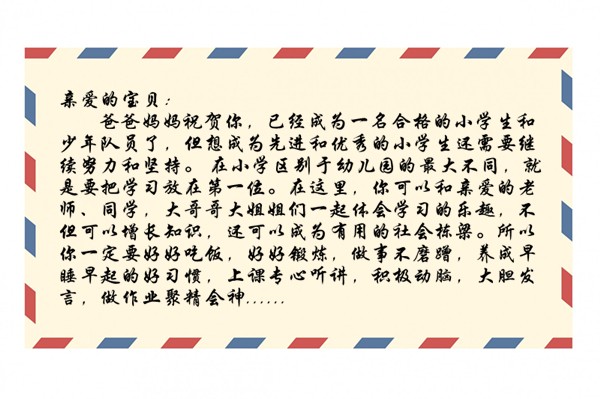 亲爱的宝贝：
爸爸妈妈祝贺你，已经成为一名合格的小学生和
少年队员了，但想成为先进和优秀的小学生还需要继
续努力和坚持。在小学区别于幼儿园的最大不同，就
是要把学习放在第一位。在这里，你可以和亲爱的老
师、同学，大哥哥大姐姐们一起体会学习的乐趣，不
但可以增长知识，还可以成为有用的社会栋梁。所以
你一定要好好吃饭，好好锻炼，做事不磨蹭，养成早
睡早起的好习惯，上课专心听讲，积极动脑，大胆发
言，做作业聚精会神......